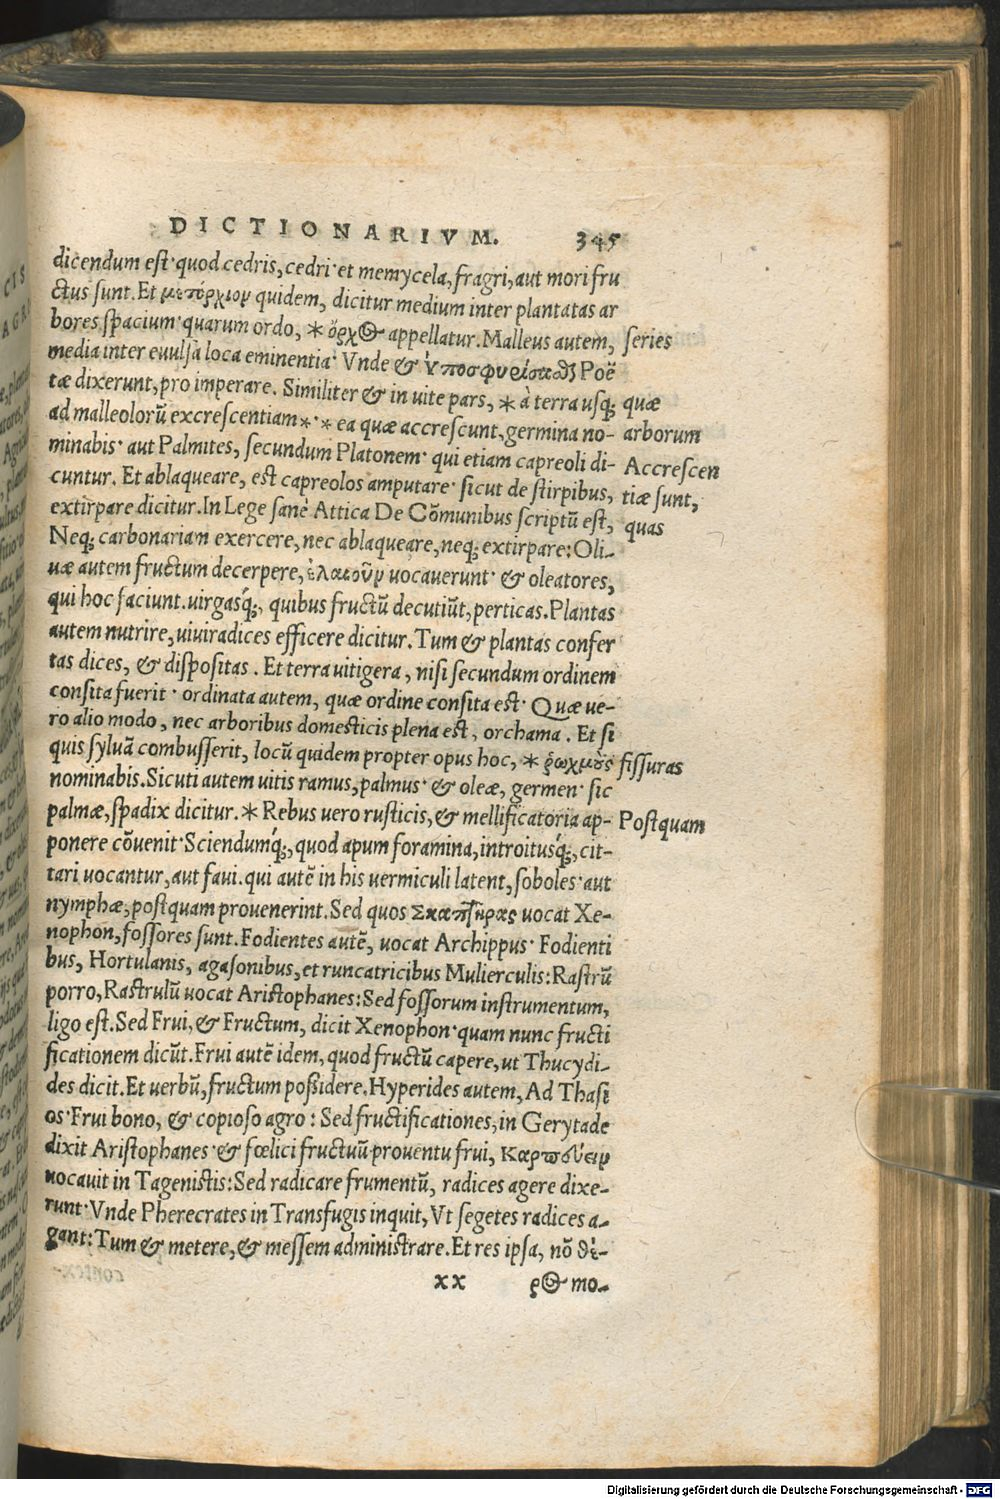 DICTIONARIVM. 345
dicendum est· quod cedris, cedri· et memycela, fragri, aut mori fru
ctus sunt. Et μετόρχιον quidem, dicitur medium inter plantatas ar
bores spacium· quarum ordo, * ὄρχος appellatur. Malleus autem, series
media inter euulsa loca eminentia· Vnde & ὑποσφυρίσασθαι Poë
tæ dixerunt, pro imperare. Similiter & in uite pars, * à terra usq; quæ
ad malleolorũ excrescentiam *·* ea quæ accrescunt, germina no- arborum
minabis· aut Palmites, secundum Platonem· qui etiam capreoli di- Accrescen
cuntur. Et ablaqueare, est capreolos amputare· sicut de stirpibus, tiæ sunt,
extirpare dicitur. In Lege sanè Attica De Cõmunibus scriptũ est, quas
Neq; carbonariam exercere, nec ablaqueare, neq; extirpare: Oli-
uæ autem fructum decerpere, ἐλαιοῦν uocauerunt· & oleatores,
qui hoc faciunt. uirgasq́;, quibus fructũ decutiũt, perticas. Plantas
autem nutrire, uiuiradices efficere dicitur. Tum & plantas confer
tas dices, & dispositas. Et terra uitigera, nisi secundum ordinem
consita fuerit· ordinata autem, quæ ordine consita est· Quæ ue-
ro alio modo, nec arboribus domesticis plena est, orchama. Et si
quis syluã combusserit, locũ quidem propter opus hoc, * ῥωχμὸς fissuras
nominabis. Sicuti autem uitis ramus, palmus· & oleæ, germen· sic
palmæ, spadix dicitur. * Rebus uero rusticis, & mellificatoria ap- Postquam
ponere cõuenit· Sciendumq́;, quod apum foramina, introitusq́;, cit-
tari uocantur, aut faui. qui autẽ in his uermiculi latent, soboles· aut
nymphæ, postquam prouenerint. Sed quos Σκαπτῆρας uocat Xe-
nophon, fossores sunt. Fodientes autẽ, uocat Archippus· Fodienti
bus, Hortulanis, agasonibus, et runcatricibus Mulierculis: Rastrũ
porro, Rastrulũ uocat Aristophanes: Sed fossorum instrumentum,
ligo est. Sed Frui, & Fructum, dicit Xenophon· quam nunc fructi
ficationem dicũt. Frui autẽ idem, quod fructũ capere, ut Thucydi-
des dicit. Et uerbũ, fructum poßidere. Hyperides autem, Ad Thasi
os· Frui bono, & copioso agro: Sed fructificationes, in Gerytade
dixit Aristophanes· & fœlici fructuũ prouentu frui, Καρπεύειν
uocauit in Tagenistis: Sed radicare frumentũ, radices agere dixe-
runt· Vnde Pherecrates in Transfugis inquit, Vt segetes radices a-
gant: Tum & metere, & messem administrare. Et res ipsa, nõ θέ-
xx ρος mo-
Digitalisierung gefördert durch die Deutsche Forschungsgemeinschaft - DFG